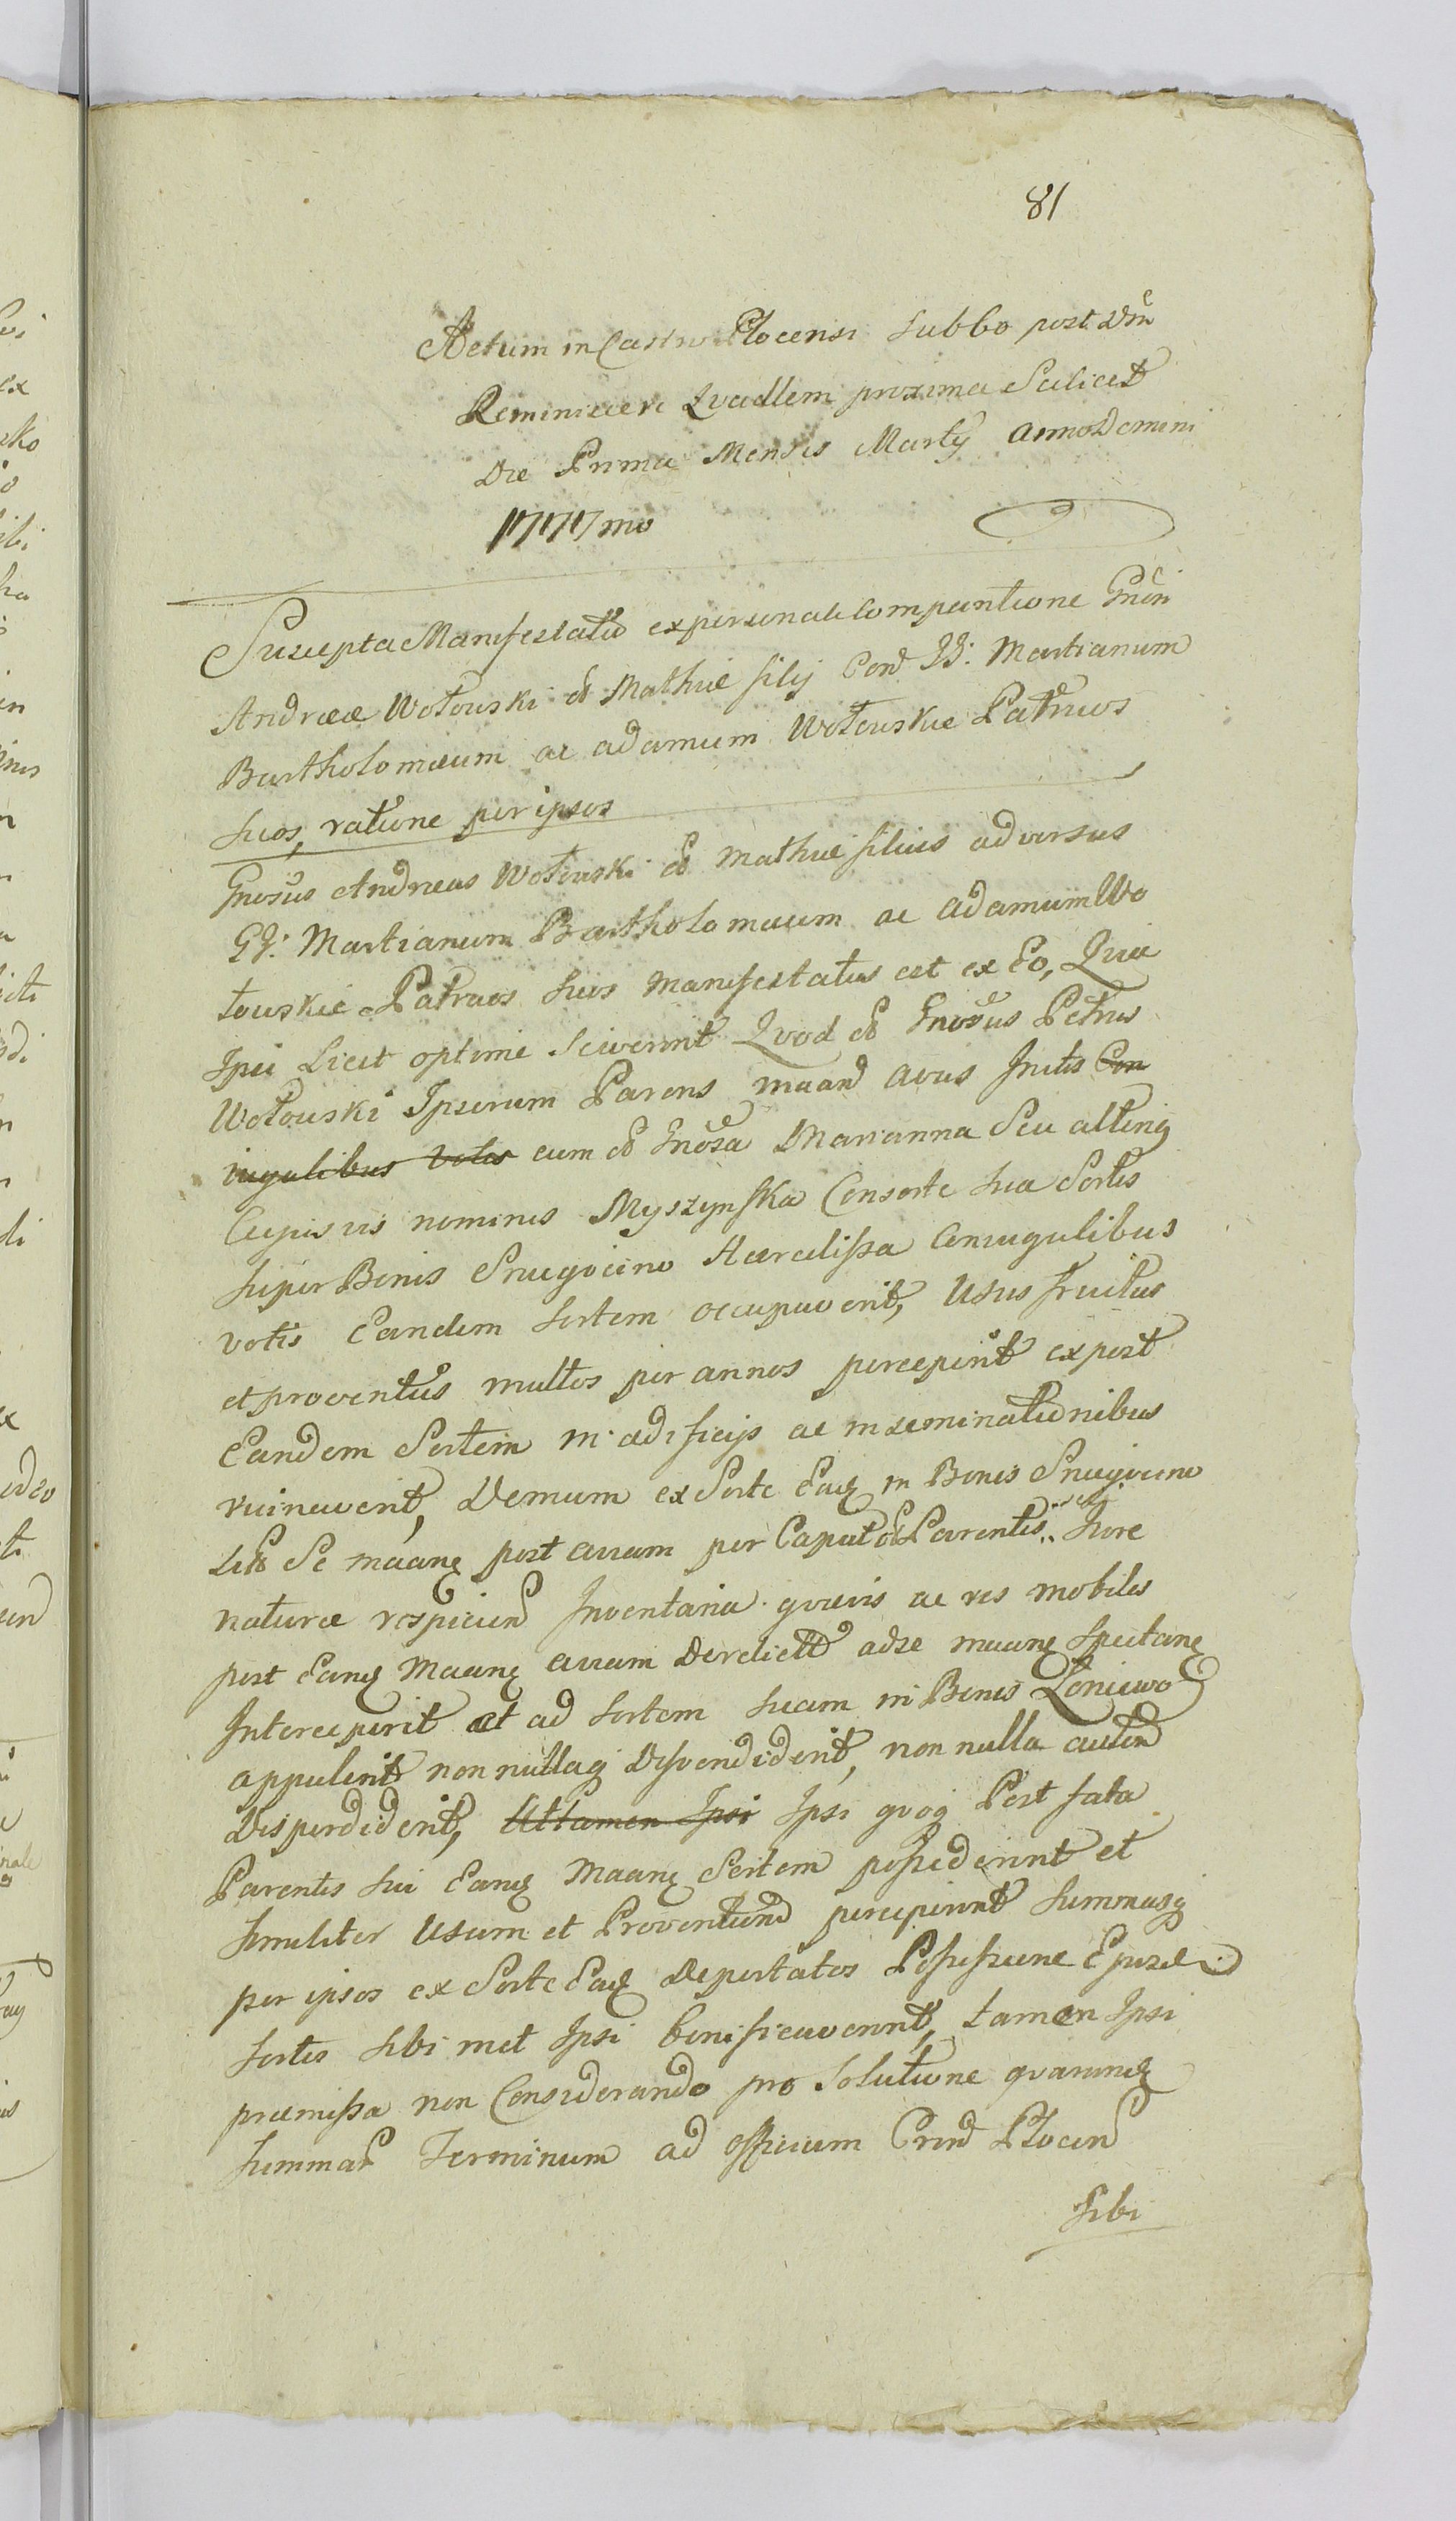 81
Actum in Castro Plocensi Sabbo post Dnc̃
Reminiscere Quadlem proxima Scilicet
Die Prima Mensis Martij Anno Domini
1777mo
Suscepta Manifestatio ex personali Comparitione Gnõsi
Andreæ Wotowski olĩ Mathiæ filij Con͠ GG: Martianum
Bartholomæum ac adamum Wotowskie Patruos
Suos, ratione per ipsos
Gnosus Andreas Wotowski olĩ Mathiæ filius adversus
GG: Martianum Bartholomæum ac adamum Wo
towskie Patruos Suos Manifestatus est ex Eo, Quia
Ipsi Licet optime Sciverint Quod olĩ Gnosus Petrus
Wotowski Ipsorum Parens maand avus Initis Con
iugalibus Votis cum olĩ Gnosa Marianna Seu alteriq
Cujusvis nominis Myszynska Consorte Sua Sortis
Super Bonis Sniegocino Hæredissa Coniugalibus
votis Eandem Sortem occupaverit, Usus fructus
et proventus multos per annos perceperit ex post
Eandem Sortem in ædificijs ac inseminationibus
ruinaverit, Demum ex Sorte Eaq in Bonis Sniegocino
maanq post aviam per Caput olĩ Parentis Jure
naturæ respicien Inventaria quævis ac res mobiles
post Eanq Maanq aviam Derelict ad se maanq Spectanq
Interceperit et ad Sortem Suam in Bonis Loniewo
appulerit non nullaq Disvendiderit, non nulla autem
Disperdiderit, Attamen Ipsi Ipsi quoq Post fata
Parentis Sui Eanq Maanq Sortem possederint et
Similiter Usum et Proventum perceperint Summasq
per ipsos ex Sorte Eaq Deportatos Possessione Ejusd
Sortis Sibi met Ipsi benificaverint, tamen Ipsi
præmissa non Considerando pro Solutione quarumq
Summar Terminum ad officium Præn Plocen
Sibi